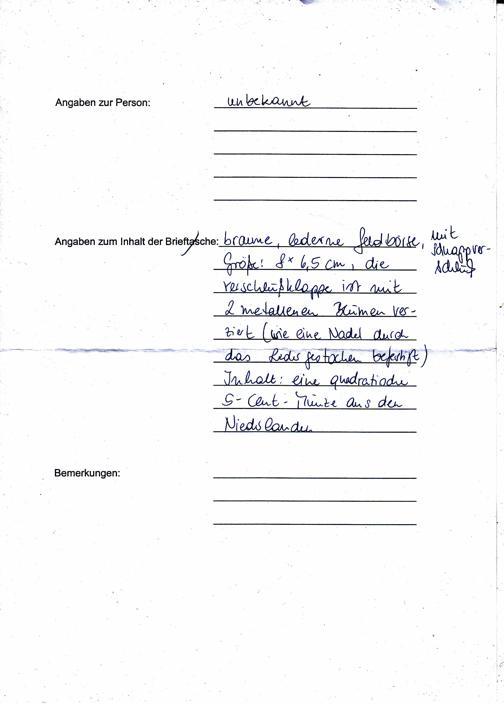 Angaben zur Person: unbekannt
Angaben zum Inhalt der Brieftasche: braune, lederne Geldbörse, mit Schnappver-
schluß
Größe: 8 x 6,5 cm, die
Verschlußklappe ist mit
2 metallenen Blumen ver-
ziert (wie eine Nadel durch
das Leder gestochen befestigt)
Inhalt: eine quadratische
5-Cent-Münze aus den
Niederlanden
Bemerkungen: